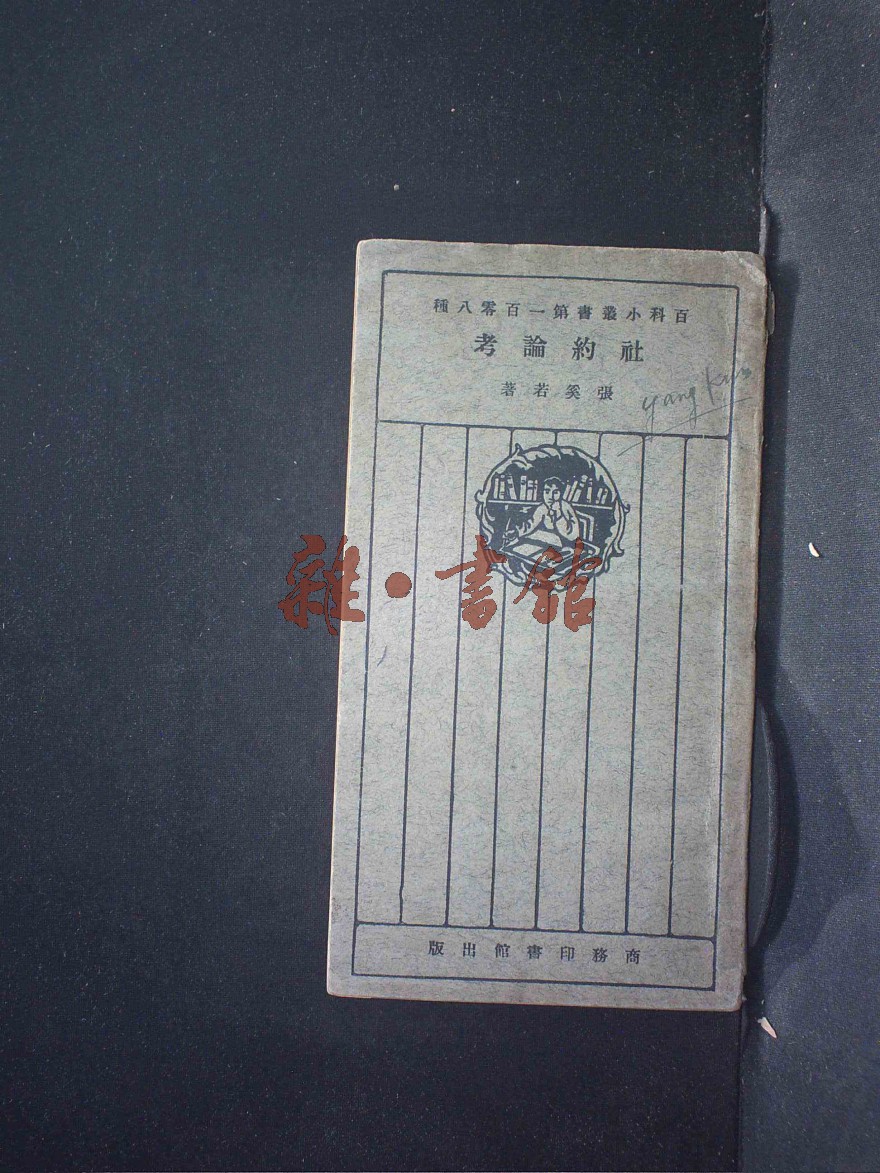 百科小叢書第一百零八種
社約論考
張奚若著
yang Kun
雜·書館
商務印書館出版